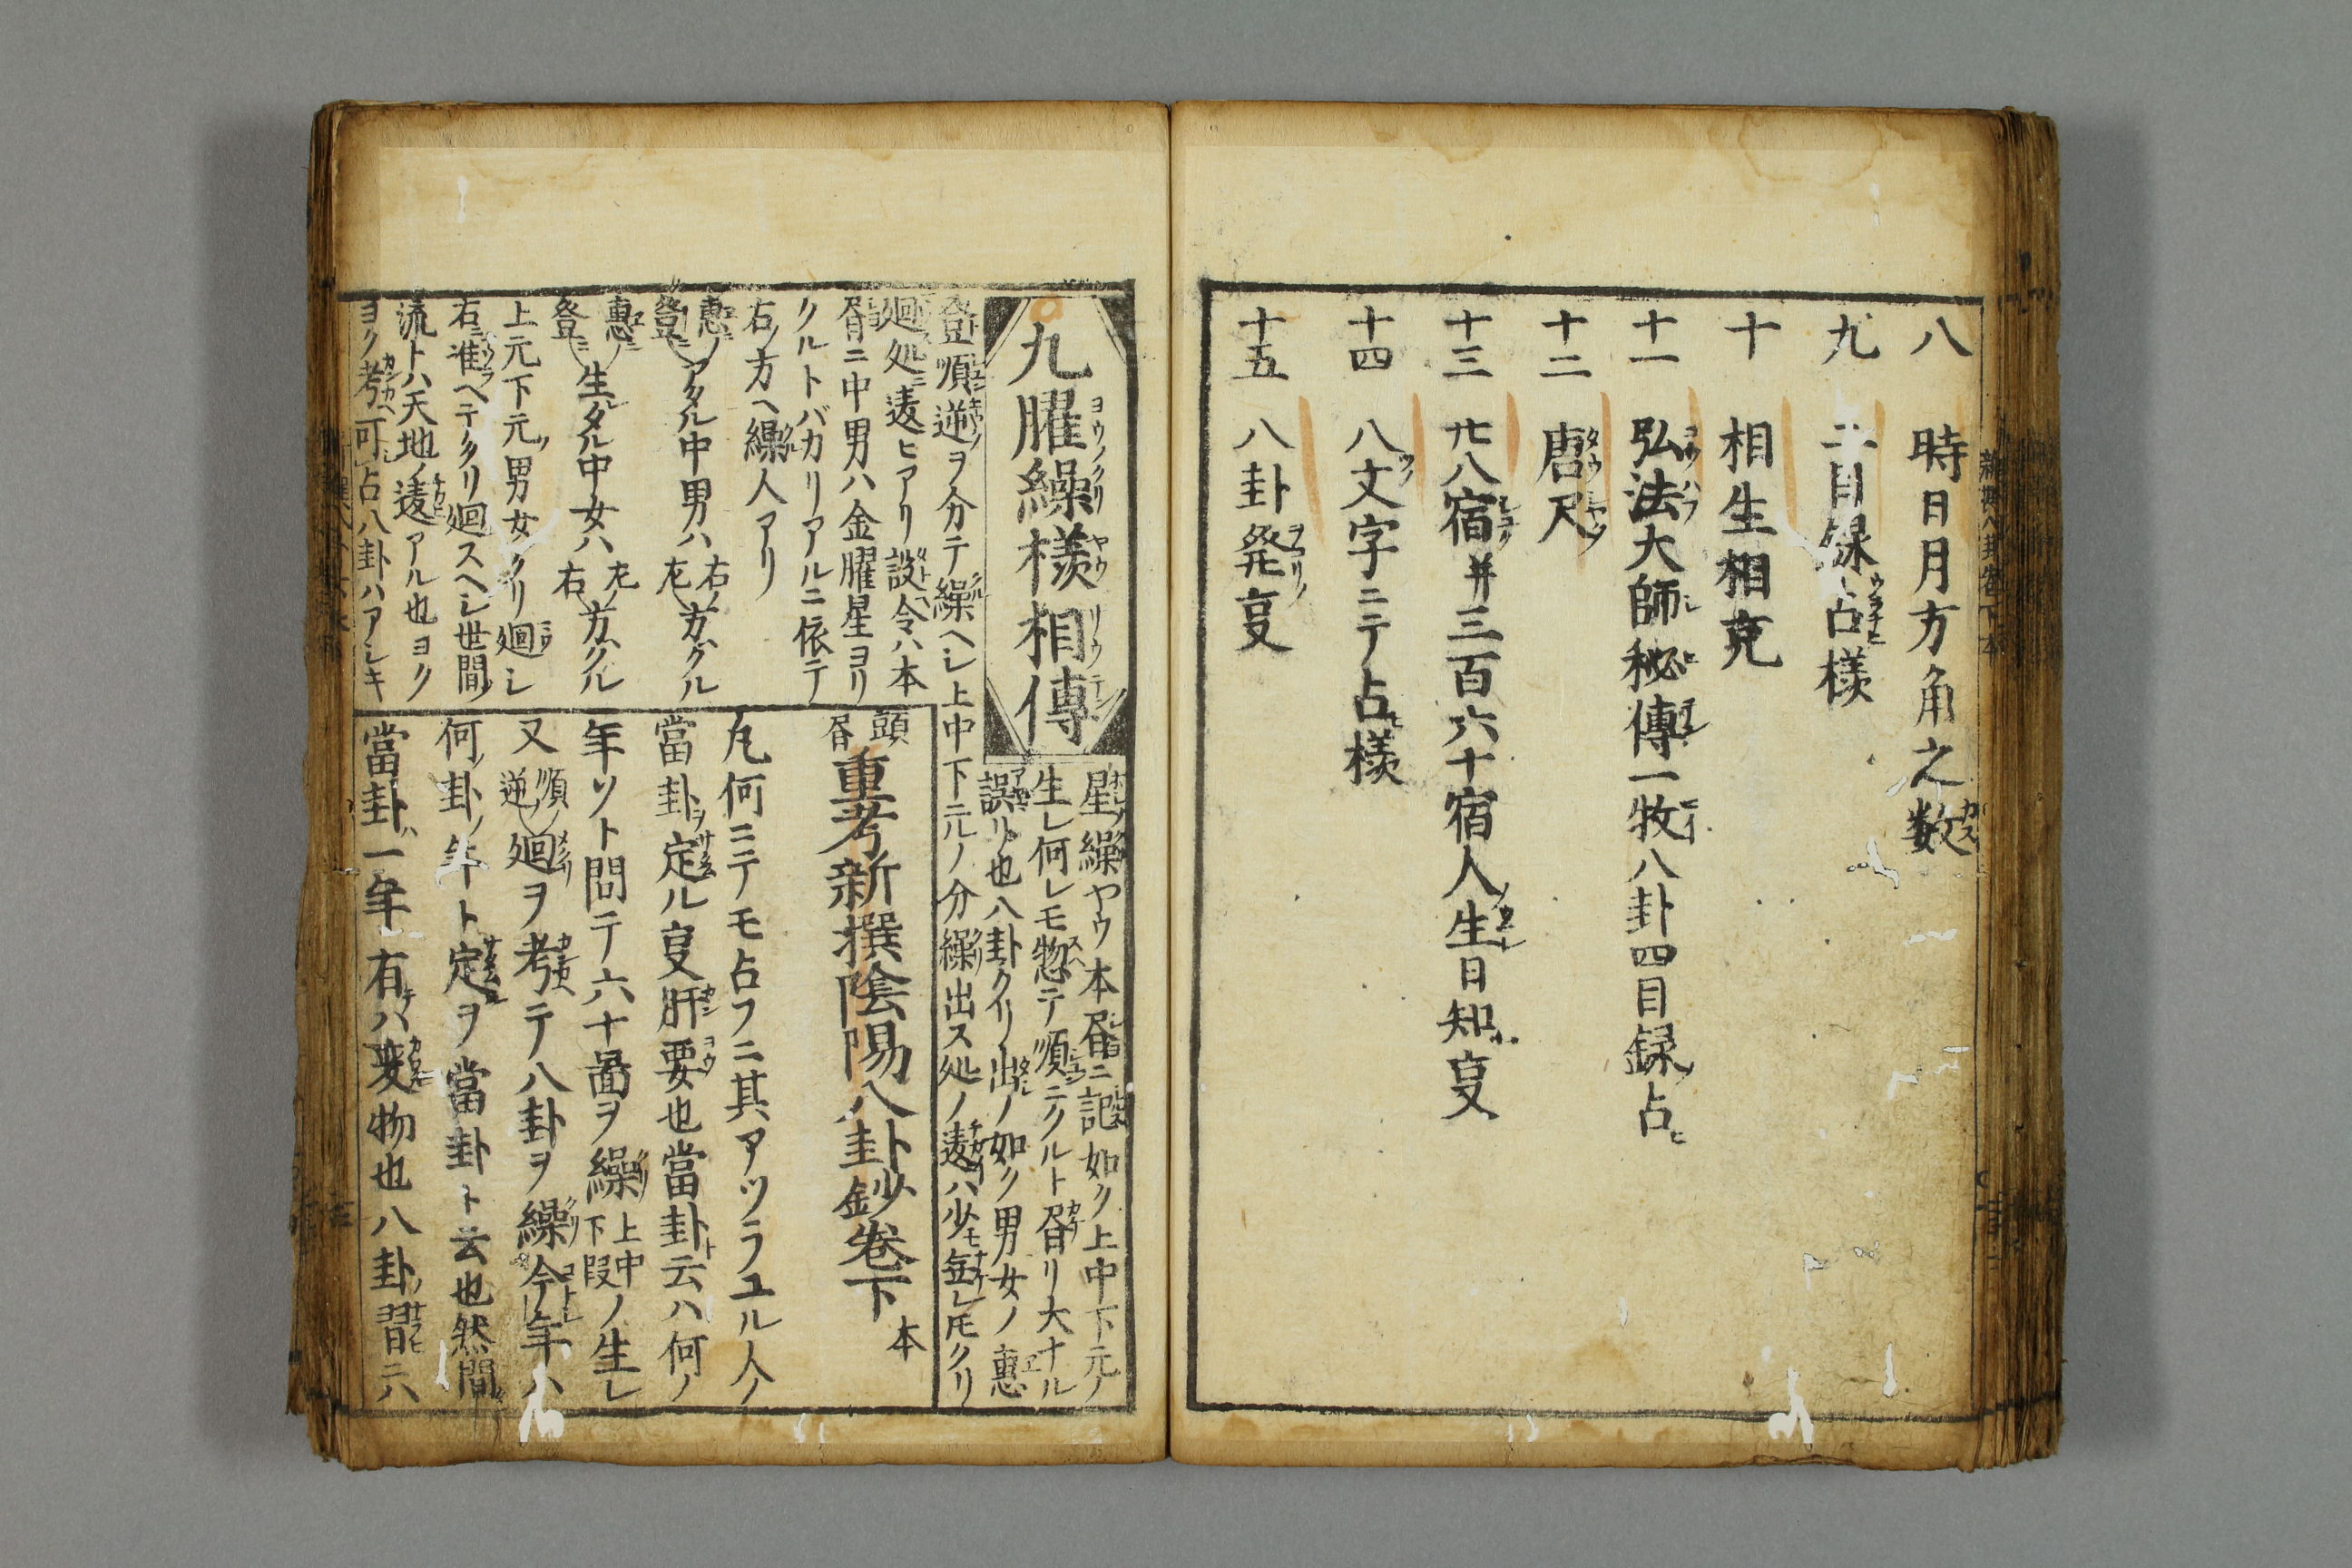 八 時日月方角之数
九 目録占樣
十 相生相克
十一 弘法大師秘傳一牧八卦四目録占
十二 唐尺
十三 廿八宿并三百六十宿人生日知叓
十四 八文字ニテ占樣
十五 八卦発叓
九臞繰樣相傳
星繰ヤウ本㞐ニ記如ク上中下元ノ
生レ何レモ惣テ順ニクルト㞐リ大ナル
誤リ也八卦クリ出ノ如ク男女ノ惠
登順逆ヲ分テ繰ヘシ上中下元ノ分繰出ス処ノ違ハ少モ無レ𪜈クリ
廻処ニ違ヒアリ設令ハ本
㞐ニ中男ハ金臞星ヨリ
クルトバカリアルニ依テ
右ノ方ヘ繰人アリ
惠登ニアタル中男ハ右左ノ方ヘクル
惠登ニ生タル中女ハ左右ノ方ヘクル
上元下元ノ男女クリ廻シ
右ニ准ヘテクリ廻スヘシ世間ノ
流トハ天地ノ違アル也ヨク
ヨク考可占八卦ハアシキ
頭㞐 重考新撰陰陽八卦鈔卷下 本
凡何ニテモ占フニ其アツラユル人ノ
當卦ヲ定ル叓肝要也當卦ト云ハ何ノ
年ソト問テ六十啚ヲ繰上中下叚ノ生レ
又順逆ノ廻ヲ考テ八卦ヲ繰今年ハ
何ノ卦ノ年ト定ヲ當卦ト云也然間
當卦ハ一年有八変物也八卦ノ習ニハ